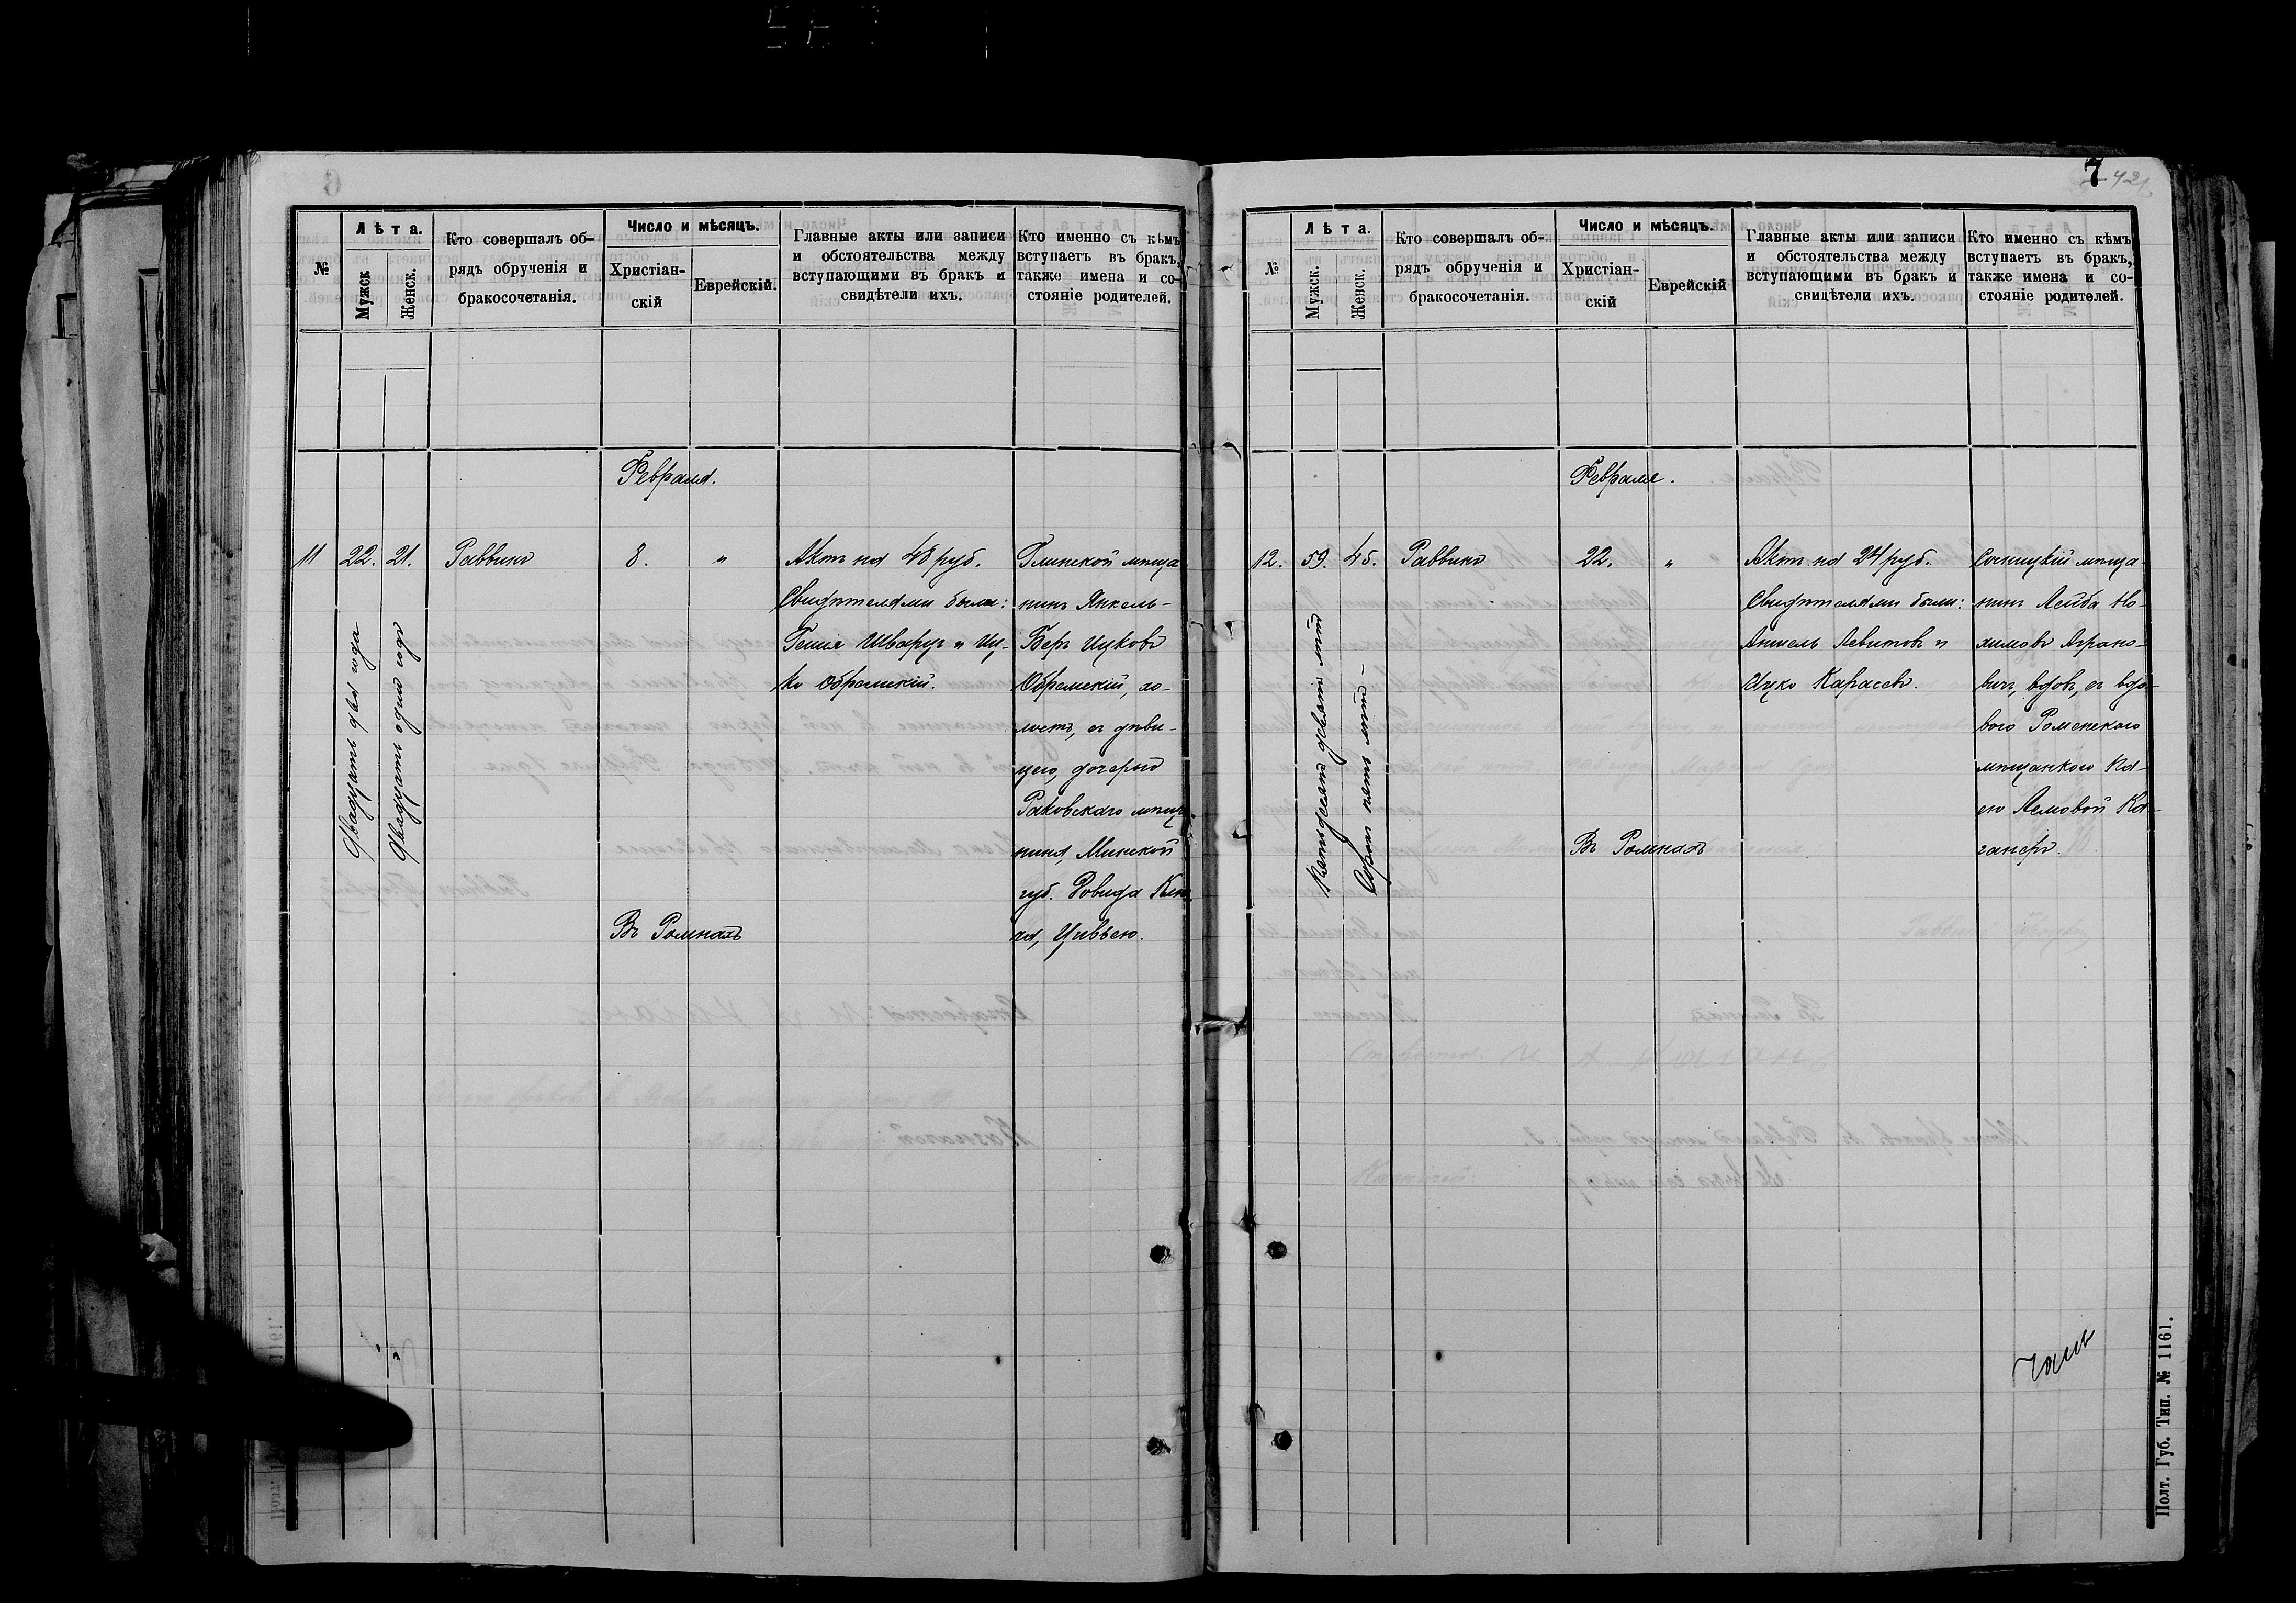 №
Лѣта.
Мужск
Женск.
Кто совершалъ об-
рядъ обрученія и
бракосочетанія.
Число и мѣсяцъ.
Христіан-
скій
Еврейскій.
Главные акты или записи
и обстоятельства между
вступающими въ бракъ и
свидѣтели ихъ.
Кто именно съ кѣмъ
вступаетъ въ бракъ,
также имена и со-
стояніе родителей.
Февраля.
11
22.
21.
Двадцать два года
Двадцать одинъ годъ
Раввинъ
8.
"
Въ Ромнахъ
Актъ на 48 руб.
Свидѣтелями были:
Гешля Шварцъ и Иц-
ко Обрамскій.
Глинской мѣща
нинъ Янкель-
Беръ Ицковъ
Обрамскій, хо-
лостъ, съ дѣви-
цею, дочерью
Раковскаго мѣща-
нина, Минской
губ. Довида
Цивьею.
7
421
№
Лѣта.
Мужск.
Женск.
Кто совершалъ об-
рядъ обрученія и
бракосочетанія.
Число и мѣсяцъ.
Христіан-
скій
Еврейскій
Главные акты или записи
и обстоятельства между
вступающими въ бракъ и
свидѣтели ихъ.
Кто именно съ кѣмъ
вступаетъ въ бракъ,
также имена и со-
стояніе родителей.
Февраля.
12.
59.
45.
Пятьдесятъ девять лѣтъ
Сорокъ пять лѣтъ —
Раввинъ
22.
"
Въ Ромнахъ
Актъ на 24 руб.
Свидѣтелями были:
Аншель Левитовъ и
Ицко Карасевъ.
Сосницкій мѣща-
нинъ Лейба Но-
химовъ Аграно-
вичъ, вдовъ, съ вдо-
вою Роменскою
мѣщанкою Ха-
ею Лемовой Ка-
ганеръ.
Полт. Губ. Тип. № 1161.